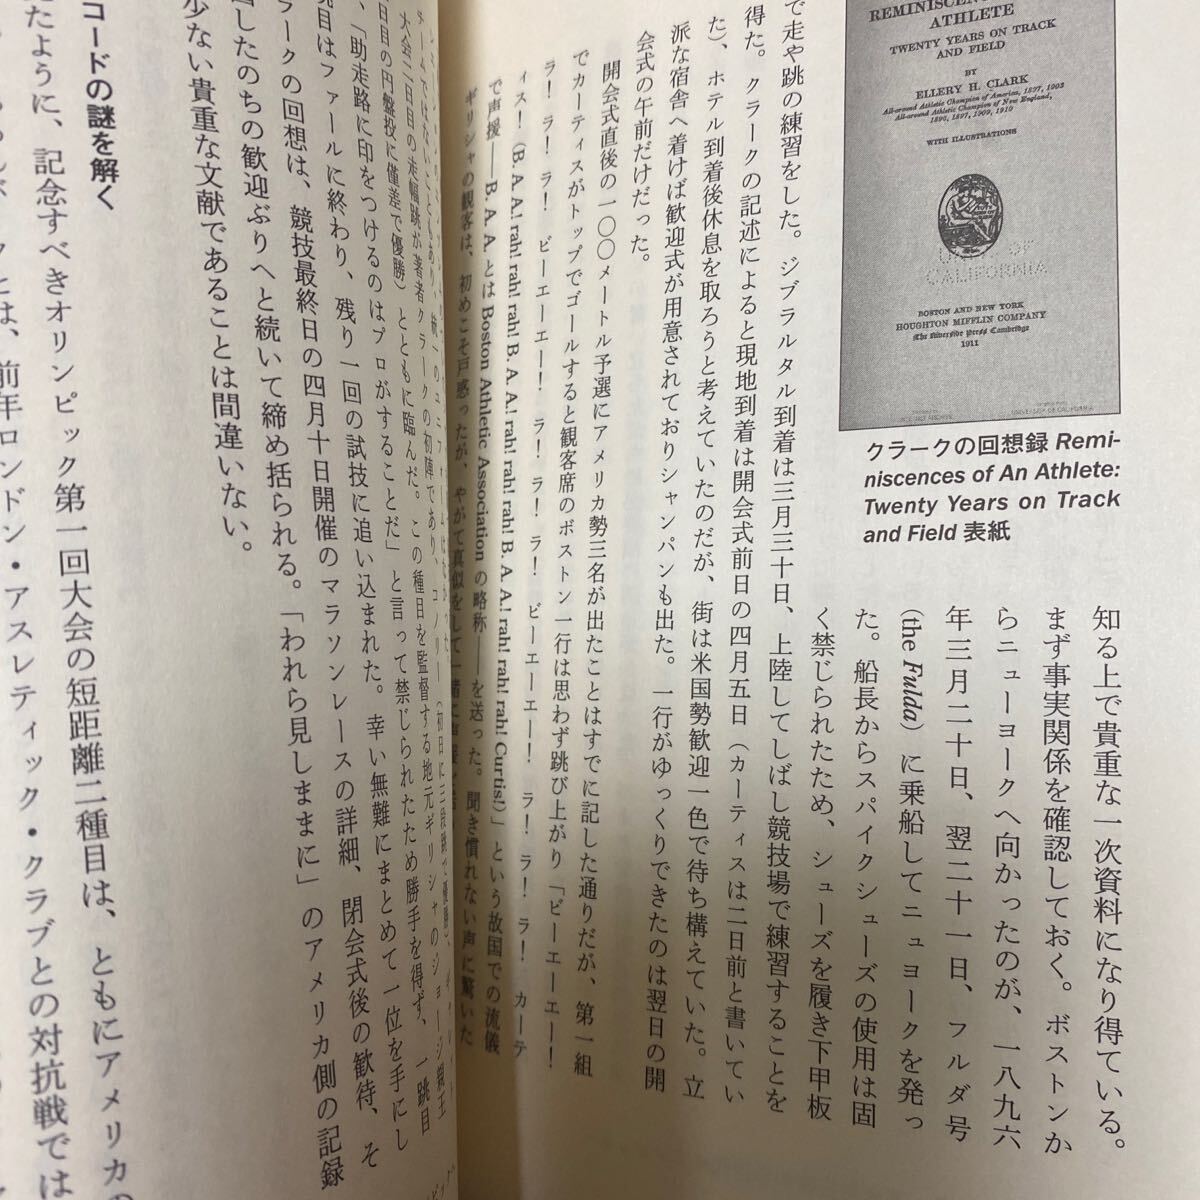 REMINISCENCES
ATHLETE
TWENTY YEARS ON TRACK
AND FIELD
BY
ELLERY H. CLARK
All-around Athletic Champion of America, 1897, 1903
All-around Athletic Champion of New England,
1896, 1897, 1909, 1910
WITH ILLUSTRATIONS
CALIFORNIA
BOSTON AND NEW YORK
HOUGHTON MIFFLIN COMPANY
The Riverside Press Cambridge
1911
クラークの回想録 Remi-
niscences of An Athlete:
Twenty Years on Track
and Field 表紙
知る上で貴重な一次資料になり得ている。
まず事実関係を確認しておく。ボストンか
らニューヨークへ向かったのが、一八九六
年三月二十日、翌二十一日、フルダ号
(the Fulda) に乗船してニューヨークを発っ
た。船長からスパイクシューズの使用は固
く禁じられたため、シューズを履き下甲板
で走や跳の練習をした。ジブラルタル到着は三月三十日、上陸してしばし競技場で練習することを
得た。クラークの記述によると現地到着は開会式前日の四月五日（カーティスは二日前と書いてい
た）、ホテル到着後休息を取ろうと考えていたのだが、街は米国勢歓迎一色で待ち構えていた。立
派な宿舎へ着けば歓迎式が用意されておりシャンパンも出た。一行がゆっくりできたのは翌日の開
会式の午前だけだった。
開会式直後の一〇〇メートル予選にアメリカ勢三名が出たことはすでに記した通りだが、第一組
でカーティスがトップでゴールすると観客席のボストン一行は思わず跳び上がり「ビーエーエー！
ラ！ラ！ラ！ビーエーエー！ラ！ラ！ラ！ビーエーエー！ラ！ラ！ラ！カーテ
ィス！(B. A. A.! rah! rah! rah! B. A. A.! rah! rah! rah! B. A. A.! rah! rah! rah! Curtis!)」という故国での流儀
で声援――B. A. A. とは Boston Athletic Association の略称――を送った。聞き慣れない声に驚いた
ギリシャの観客は、初めこそ戸惑ったが、やがて真似をして一緒に
大会二日目の走幅跳が著者クラークの初陣であり、コノリー（初日に三段跳で優勝）、
日目の円盤投に僅差で優勝）とともに臨んだ。この種目を監督する地元ギリシャのジョージ親王
、「助走路に印をつけるのはプロがすることだ」と言って禁じられたため勝手を得ず、一跳目
発目はファールに終わり、残り一回の試技に追い込まれた。幸い無難にまとめて一位を手にし
ラークの回想は、競技最終日の四月十日開催のマラソンレースの詳細、閉会式後の歓待、そ
したのちの歓迎ぶりへと続いて締め括られる。「われら見しままに」のアメリカ側の記録
少ない貴重な文献であることは間違いない。
コードの謎を解く
たように、記念すべきオリンピック第一回大会の短距離二種目は、ともにアメリカの
には、前年ロンドン・アスレティック・クラブとの対抗戦では